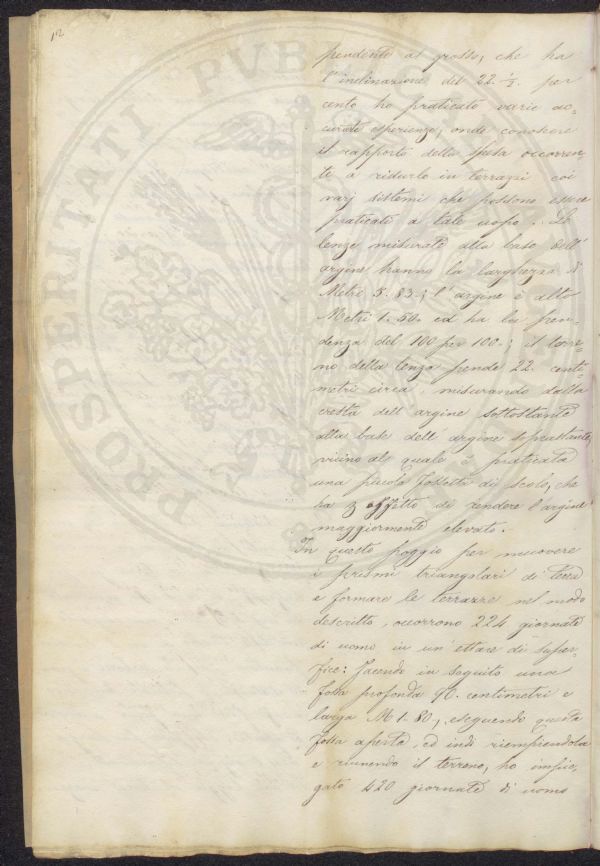 12
pendente al grosso, che ha
l'inclinazione del 22 ½ per
cento ho praticato varie ac=
curate esperienze, onde conoscere
il rapporto della spesa occorren=
te a ridurlo in terrazzi coi
varj sistemi che possono essere
praticati a tale uopo. Le
lenze misurate alla base dell'
argine hanno la larghezza di
Metri 5. 83.; l'argine è alto
Metri 1. 50. ed ha la pen=
denza del 100 per 100.; il terre=
no della lenza pende 22 centi=
metri circa, misurando dalla
cresta dell'argine sottostante
alla base dell'argine soprastante,
vicino al quale è praticata
una piccola fossetta di scolo, che
ha effetto di rendere l'argine
maggiormente elevato.
In questo poggio per muovere
i prismi triangolari di terra
e formare le terrazze nel modo
descritto, occorrono 224 giornate
di uomo in un'ettare di super=
fice: facendo in seguito una
fossa profonda centimetri e
larga M 1. 80, eseguendo questa
fossa aperta, ed indi riempiendola
e riunendo il terreno, ho impie=
gato 420 giornate di uomo